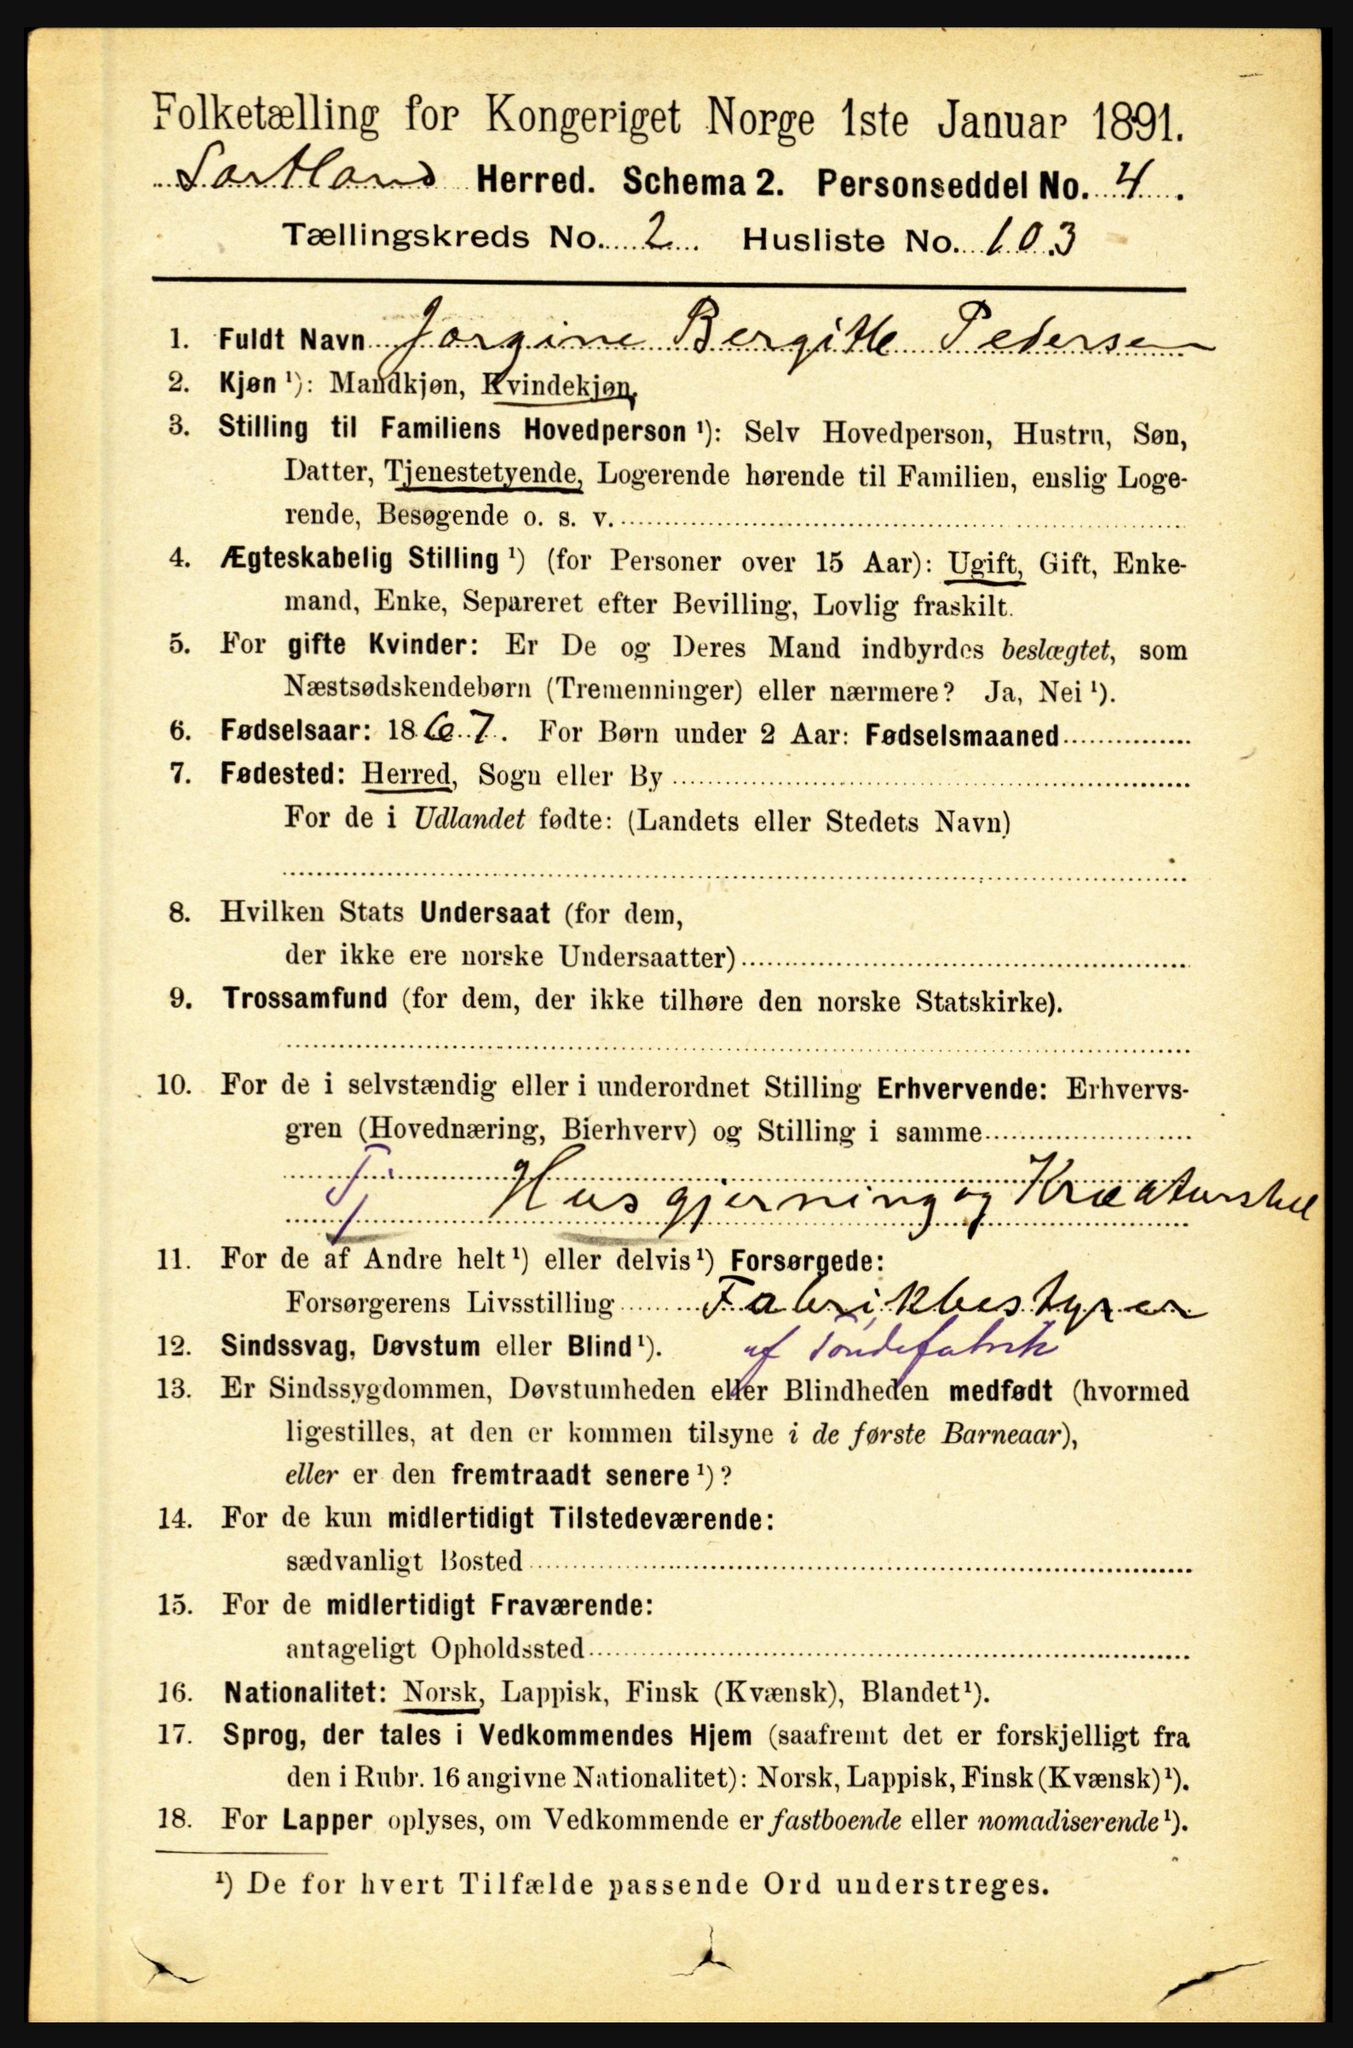 Folketælling for Kongeriget Norge 1ste Januar 1891.
Sortland Herred. Schema 2. Personseddel No. 4.
Tællingskreds No. 2 Husliste No. 103
1. Fuldt Navn Jorgine Bergitte Pedersen
2. Kjøn ¹): Mandkjøn, Kvindekjøn,
3. Stilling til Familiens Hovedperson ¹): Selv Hovedperson, Hustru, Søn,
Datter, Tjenestetyende, Logerende hørende til Familien, enslig Loge-
rende, Besøgende o. s. v.
4. Ægteskabelig Stilling ¹) (for Personer over 15 Aar): Ugift, Gift, Enke-
mand, Enke, Separeret efter Bevilling, Lovlig fraskilt.
5. For gifte Kvinder: Er De og Deres Mand indbyrdes beslægtet, som
Næstsødskendebørn (Tremenninger) eller nærmere? Ja, Nei ¹).
6. Fødselsaar: 1867. For Børn under 2 Aar: Fødselsmaaned
7. Fødested: Herred, Sogn eller By
For de i Udlandet fødte: (Landets eller Stedets Navn)
8. Hvilken Stats Undersaat (for dem,
der ikke ere norske Undersaatter)
9. Trossamfund (for dem, der ikke tilhøre den norske Statskirke).
10. For de i selvstændig eller i underordnet Stilling Erhvervende: Erhvervs-
gren (Hovednæring, Bierhverv) og Stilling i samme
Tj Husgjerning og Kreaturstel
11. For de af Andre helt ¹) eller delvis ¹) Forsørgede:
Forsørgerens Livsstilling Fabrikbestyrer
12. Sindssvag, Døvstum eller Blind ¹). af Tøndefabrik
13. Er Sindssygdommen, Døvstumheden eller Blindheden medfødt (hvormed
ligestilles, at den er kommen tilsyne i de første Barneaar),
eller er den fremtraadt senere ¹)?
14. For de kun midlertidigt Tilstedeværende:
sædvanligt Bosted
15. For de midlertidigt Fraværende:
antageligt Opholdssted
16. Nationalitet: Norsk, Lappisk, Finsk (Kvænsk), Blandet ¹).
17. Sprog, der tales i Vedkommendes Hjem (saafremt det er forskjelligt fra
den i Rubr. 16 angivne Nationalitet): Norsk, Lappisk, Finsk (Kvænsk) ¹).
18. For Lapper oplyses, om Vedkommende er fastboende eller nomadiserende ¹).
¹) De for hvert Tilfælde passende Ord understreges.